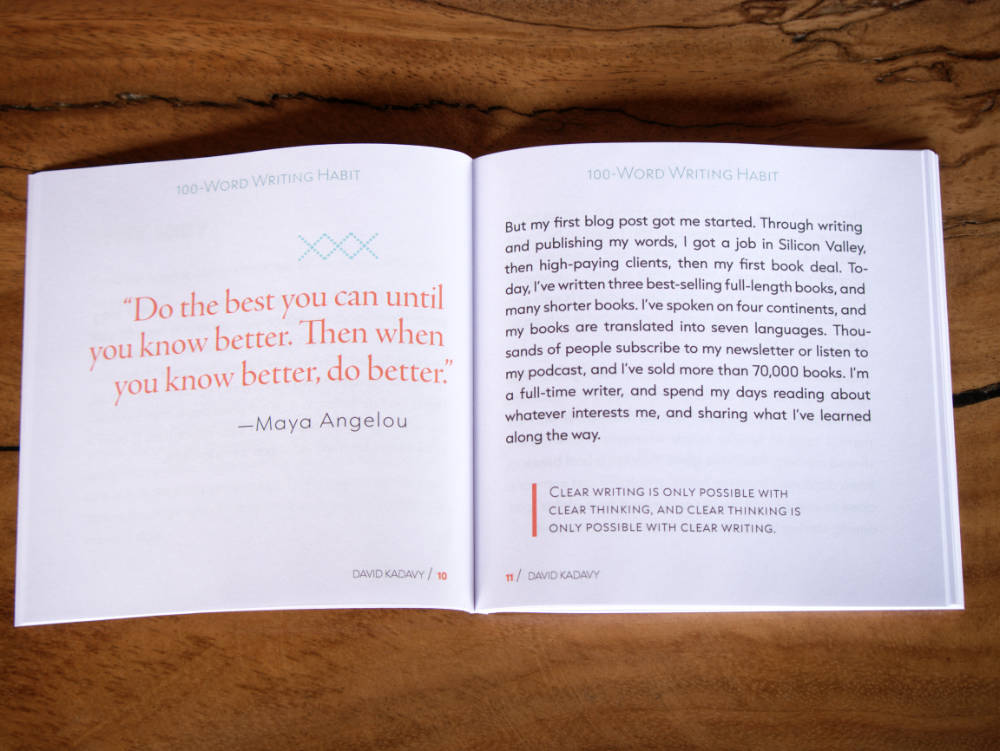 100-Word Writing Habit
“Do the best you can until
you know better. Then when
you know better, do better.”
—Maya Angelou
DAVID KADAVY / 10
100-Word Writing Habit
But my first blog post got me started. Through writing
and publishing my words, I got a job in Silicon Valley,
then high-paying clients, then my first book deal. To-
day, I’ve written three best-selling full-length books, and
many shorter books. I’ve spoken on four continents, and
my books are translated into seven languages. Thou-
sands of people subscribe to my newsletter or listen to
my podcast, and I’ve sold more than 70,000 books. I’m
a full-time writer, and spend my days reading about
whatever interests me, and sharing what I’ve learned
along the way.
Clear writing is only possible with
clear thinking, and clear thinking is
only possible with clear writing.
11 / DAVID KADAVY